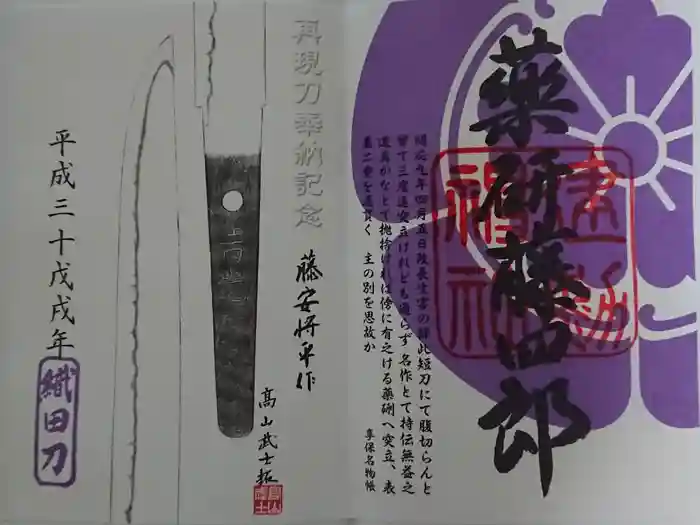 薬研藤四郎
建勲
神社
明応九年四月五日政長生害の節此短刀にて腹切らんと
皆て三度迄突立けれども通らず名作とて持伝無益之
道具かなとて抛捨ければ傍に有之ける薬研へ突立、表
裏二重を通貫く 主の別を思故か
享保名物帳
再現刀奉納記念
藤安将平作
髙山武士拓
吉光
平成三十戊戌年
織田刀